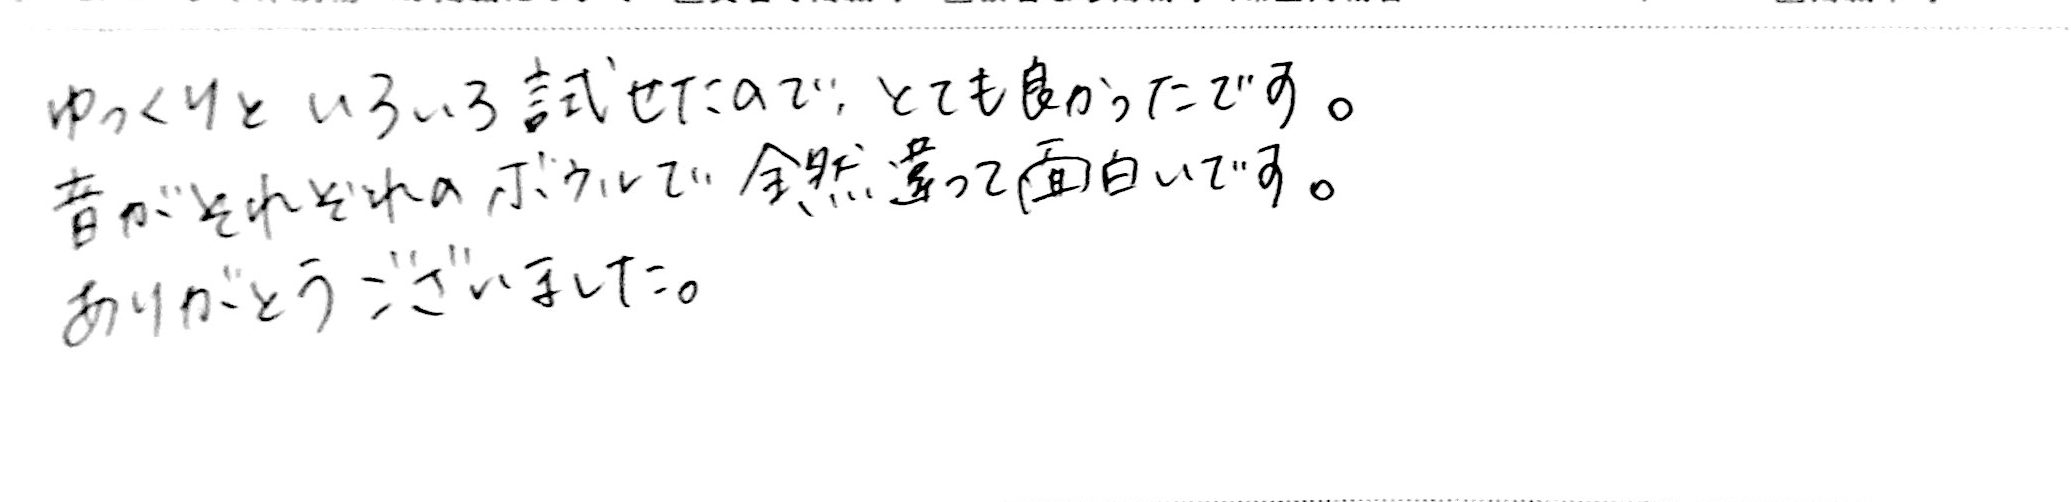 ゆっくりといろいろ試せたので、とても良かったです。
音がそれぞれのボウルで全然違って面白いです。
ありがとうございました。